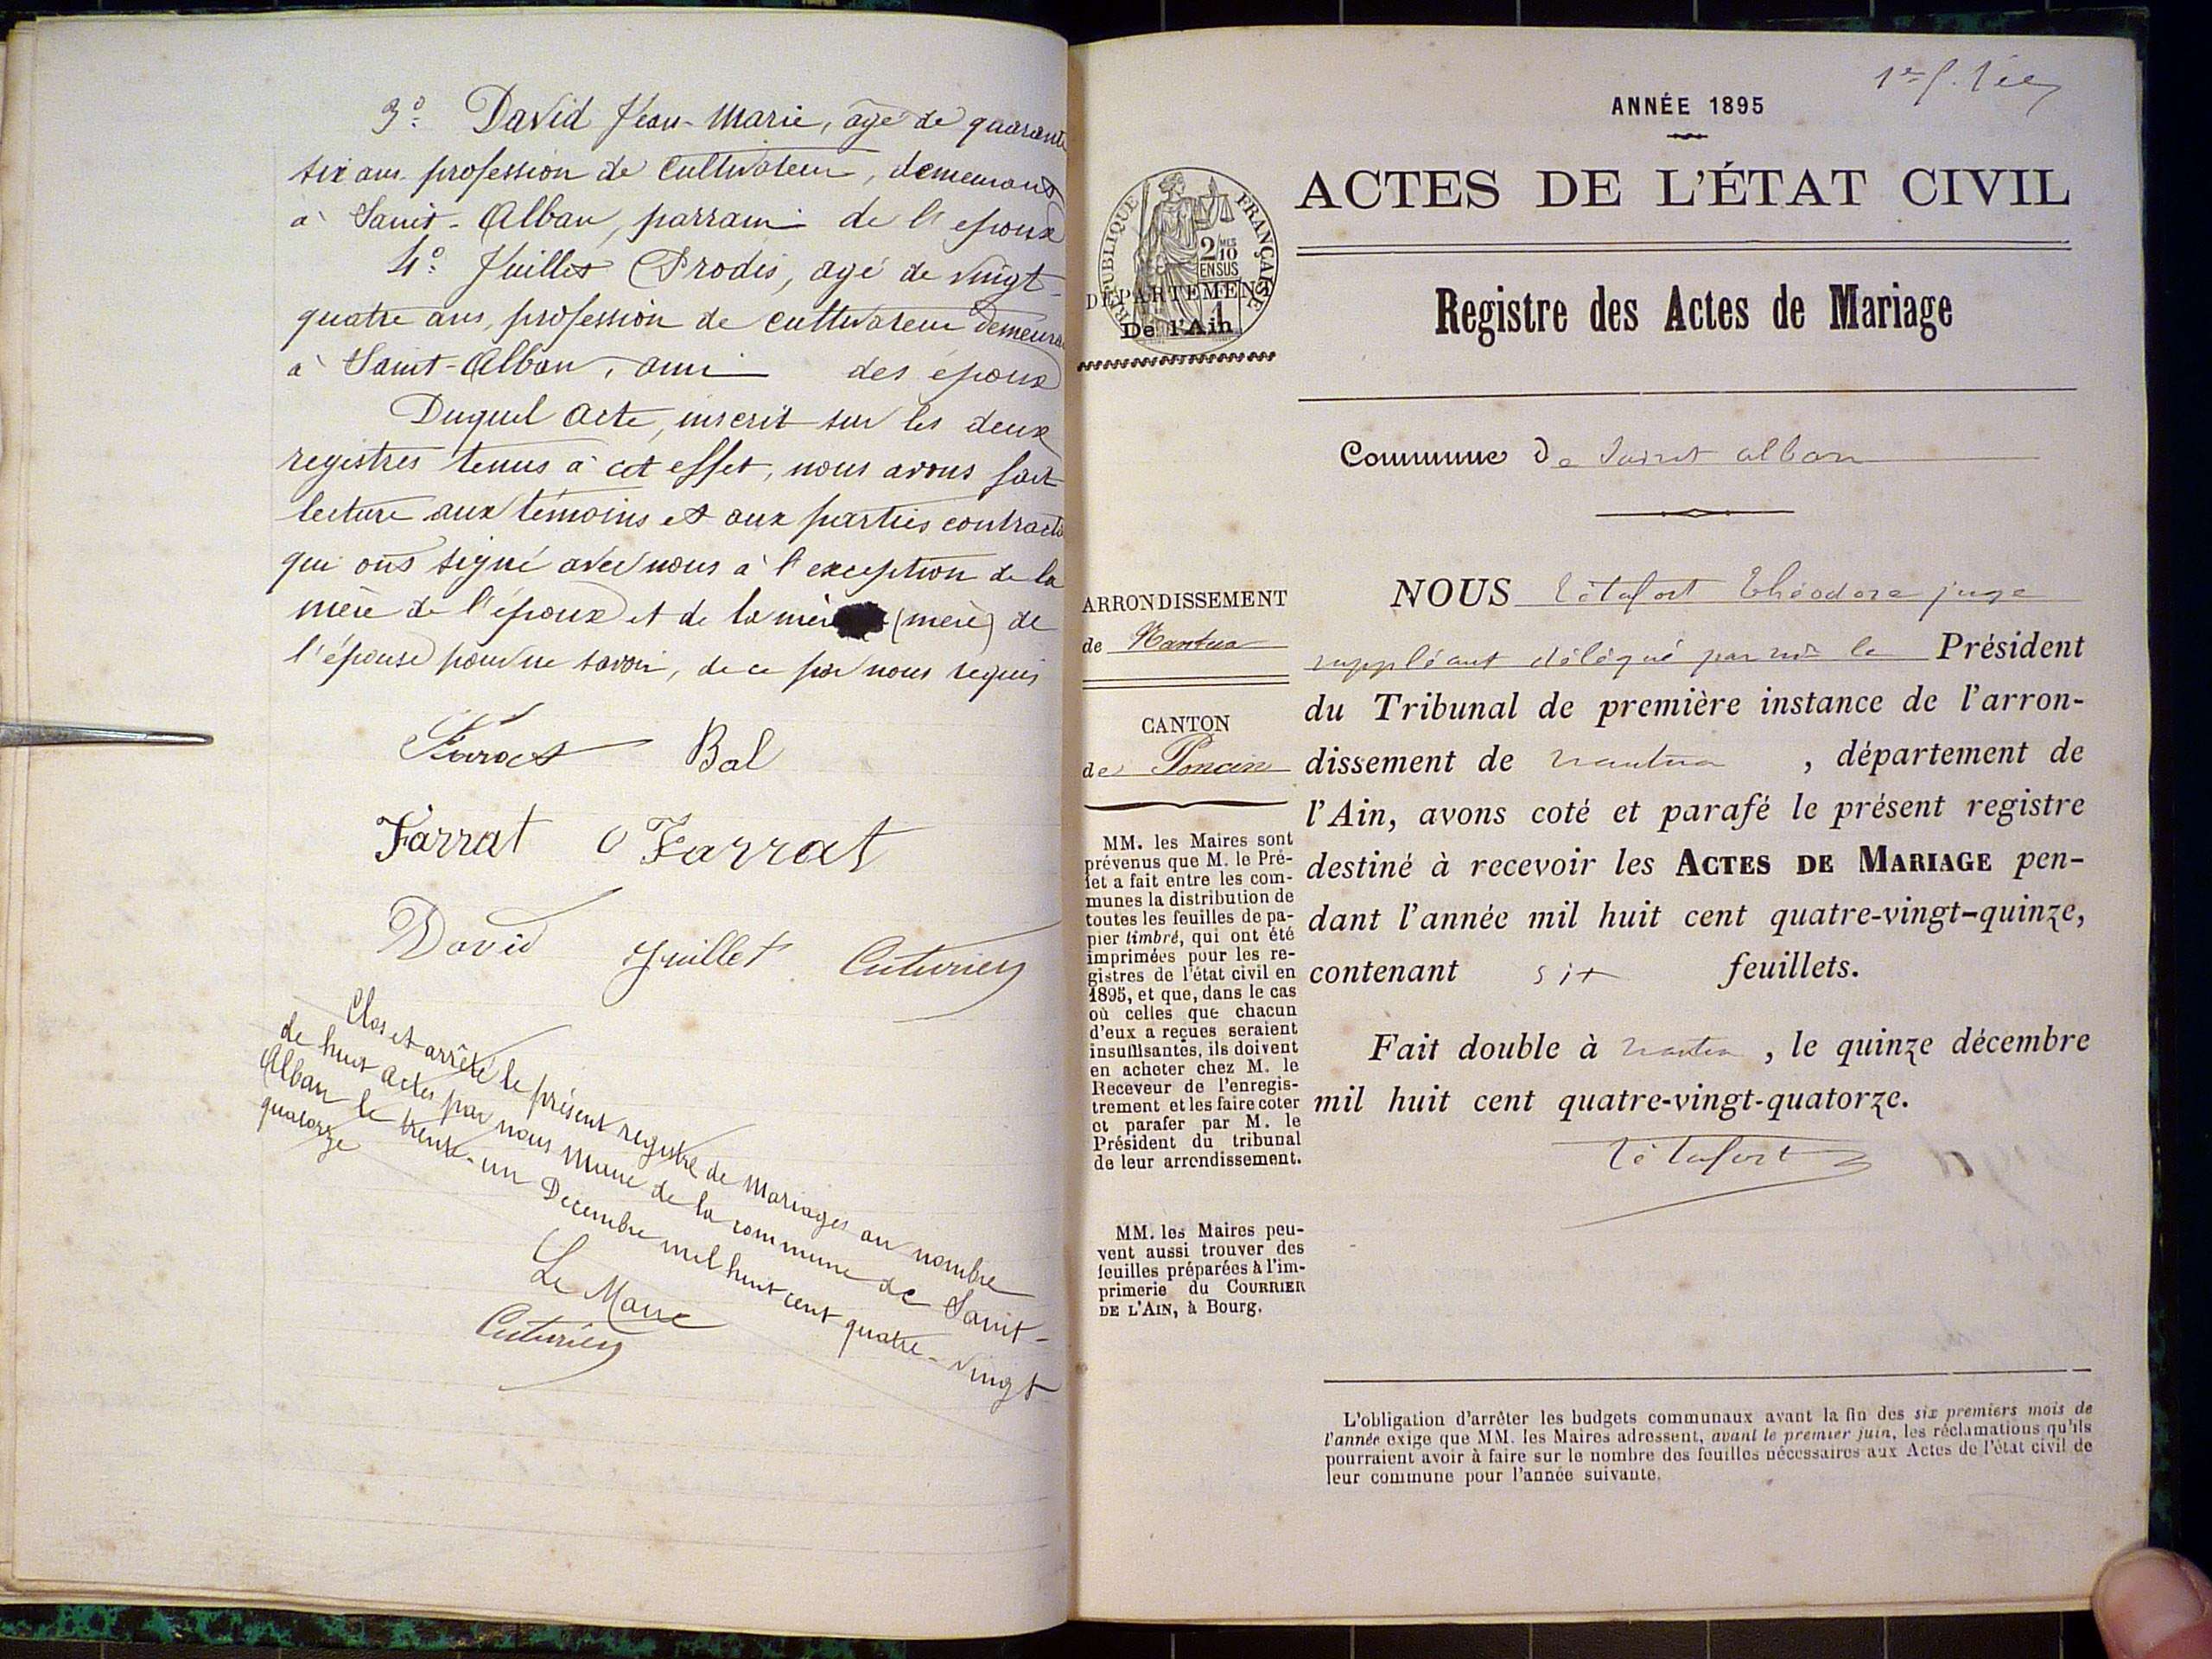 3º. David Jean-Marie, âgé de quarante
six ans profession de cultivateur, demeurant
à Saint-Alban, parrain de l'époux
4º. Juillet Prodis, agé de vingt-
quatre ans, profession de cultivateur demeura
à Saint-Alban, ami des époux
Duquel acte, inscrit sur les deux
registres tenus à cet effet, nous avons fait
lecture aux témoins et aux parties contracta
qui ont signé avec nous à l'exception de la
mère de l'époux et de la (mère) de
l'épouse pour ne savoir, de ce par nous requis
Bal
Farrat Farrat
David Juillet Cuturier
Clos et arrêté le présent registre de Mariages au nombre
de huit actes par nous Maire de la commune de Saint-
Alban le trente-un Décembre mil huit cent quatre-vingt
quatorze
Le Maire
Cuturier
ANNÉE 1895
ACTES DE L'ÉTAT CIVIL
RÉPUBLIQUE FRANÇAISE
2/10 MES
EN SUS
DÉPARTEMENT
De l'Ain
Registre des Actes de Mariage
Commune de Saint alban
ARRONDISSEMENT
de Nantua
CANTON
de Poncin
MM. les Maires sont
prévenus que M. le Pré-
fet a fait entre les com-
munes la distribution de
toutes les feuilles de pa-
pier timbré, qui ont été
imprimées pour les re-
gistres de l'état civil en
1895, et que, dans le cas
où celles que chacun
d'eux a reçues seraient
insuffisantes, ils doivent
en acheter chez M. le
Receveur de l'enregis-
trement et les faire coter
et parafer par M. le
Président du tribunal
de leur arrondissement.
MM. les Maires peu-
vent aussi trouver des
feuilles préparées à l'im-
primerie du COURRIER
DE L'AIN, à Bourg.
NOUS Tétafort Théodore juge
suppléant délégué par mr le Président
du Tribunal de première instance de l'arron-
dissement de nantua , département de
l'Ain, avons coté et parafé le présent registre
destiné à recevoir les ACTES DE MARIAGE pen-
dant l'année mil huit cent quatre-vingt-quinze,
contenant six feuillets.
Fait double à nantua , le quinze décembre
mil huit cent quatre-vingt-quatorze.
Tétafort
L'obligation d'arrêter les budgets communaux avant la fin des six premiers mois de
l'année exige que MM. les Maires adressent, avant le premier juin, les réclamations qu'ils
pourraient avoir à faire sur le nombre des feuilles nécessaires aux Actes de l'état civil de
leur commune pour l'année suivante.